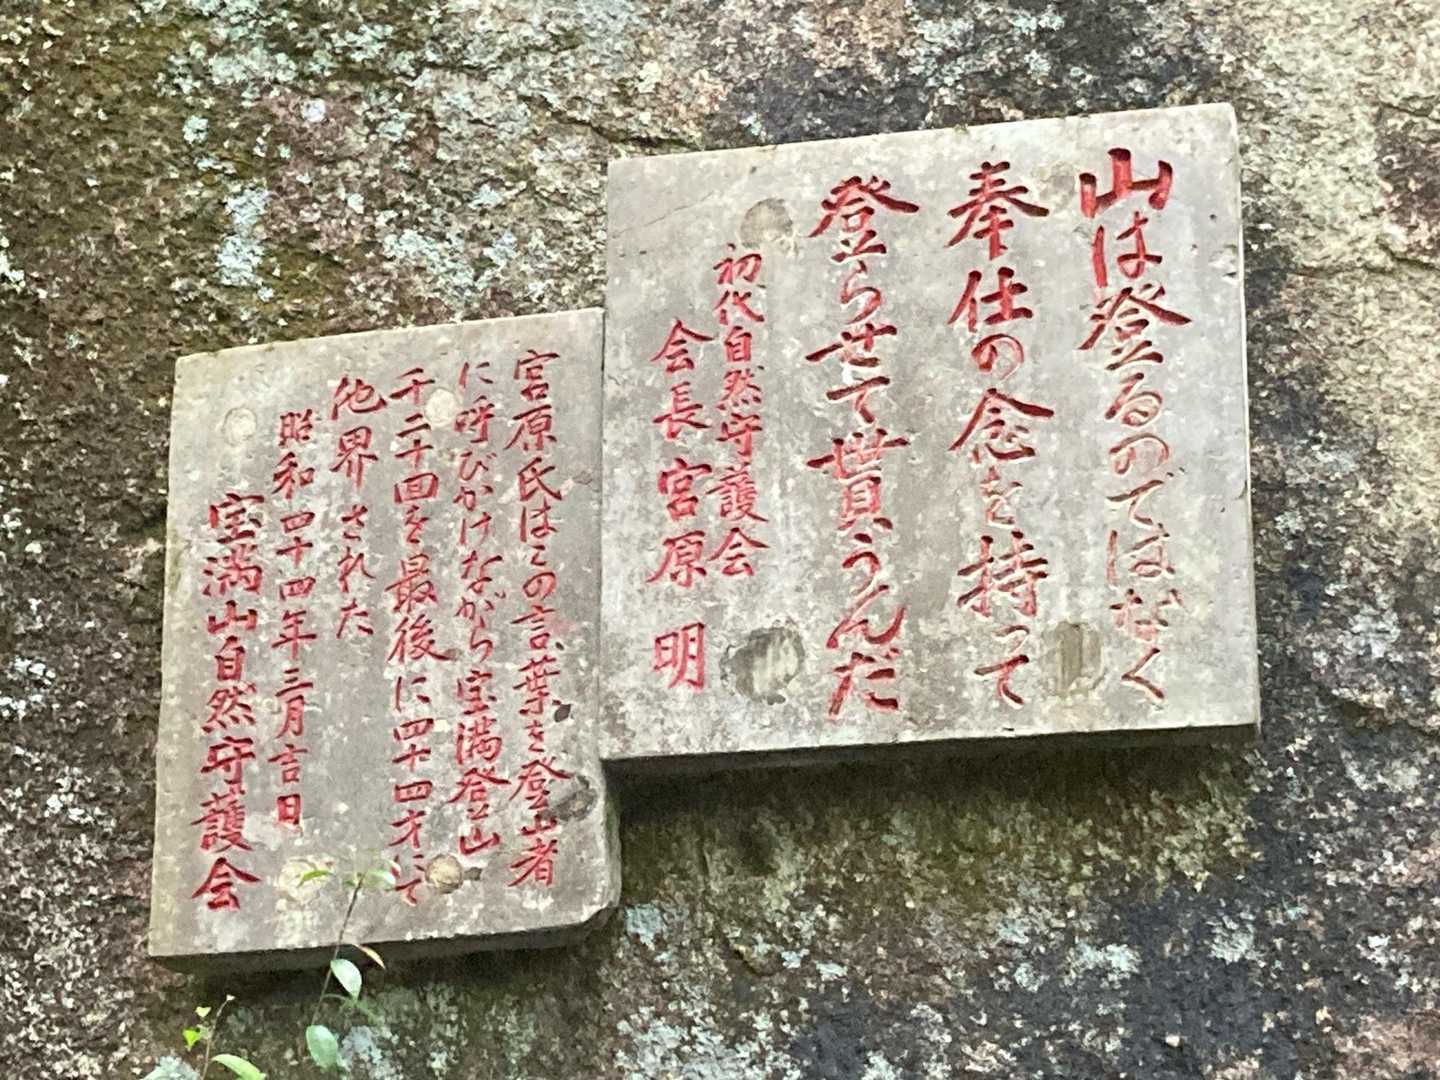 山は登るのではなく
奉仕の念を持って
登らせて貰うんだ
初代自然守護会
会長宮原明
宮原氏はこの言葉を登山者
に呼びかけながら宝満登山
千二十回を最後に四十四才にて
他界された
昭和四十四年三月吉日
宝満山自然守護会